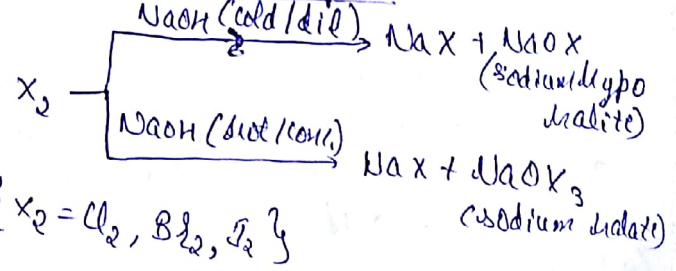 NaOH (cold/dil)
NaX + NaOX
(sodium Hypo
halite)
X₂
NaOH (hot/conc.)
NaX + NaOX₃
(sodium halate)
X₂ = Cl₂, Br₂, I₂ }